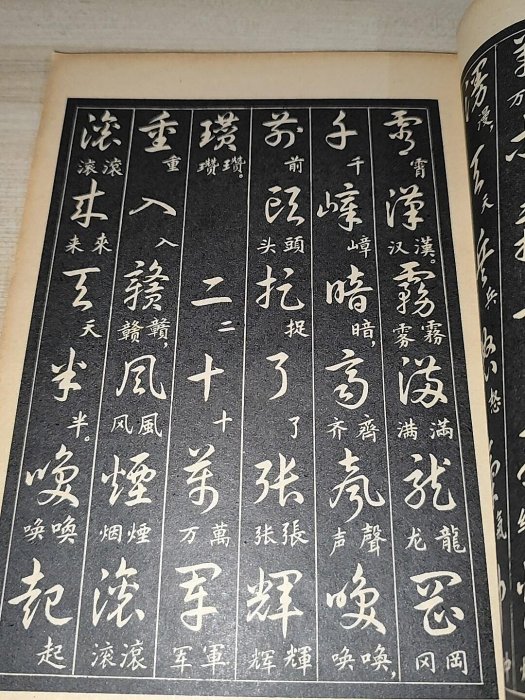 万
漫漫, 天天 兵兵 怒怒 氣
霄霄 漢汉漢。 霧雾霧 滿满滿 龍龙龍 岡冈岡
千千 嶂嶂 暗暗, 齊齐齊 聲声聲 喚唤喚,
前前 頭头頭 捉捉 了了 張张張 輝辉輝
瓚瓒瓚。 二二 十十 萬万萬 軍军軍
重重 入入 贛赣贛, 風风風 煙烟煙 滾滚滾
滾滚滾 來来來 天天 半半。 喚唤喚 起起